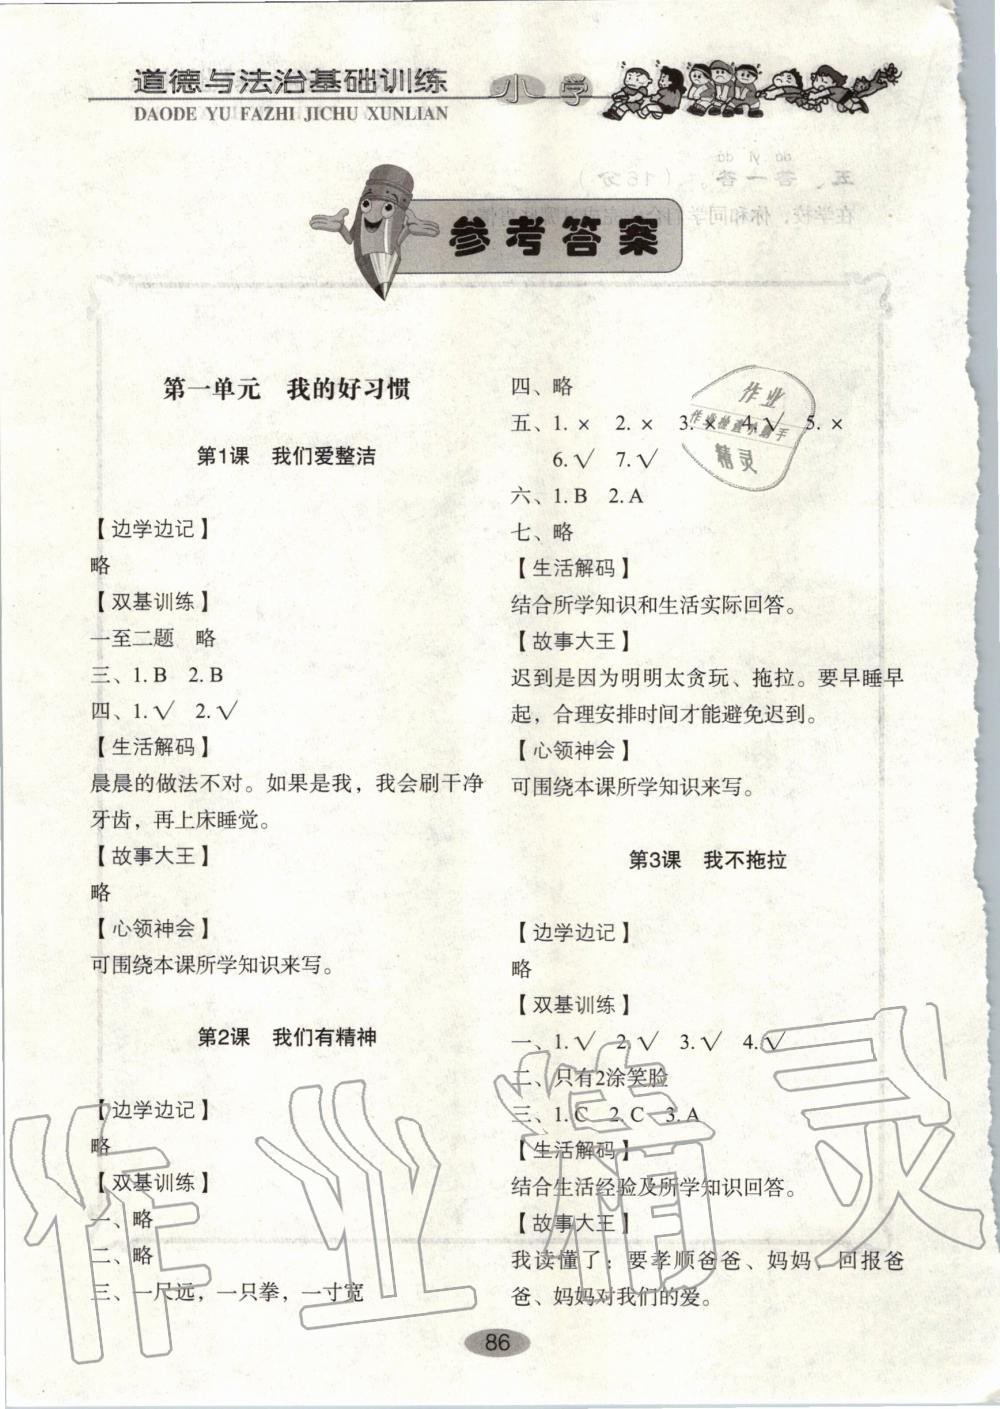 道德与法治基础训练 小学
DAODE YU FAZHI JICHU XUNLIAN
参考答案
第一单元 我的好习惯
第1课 我们爱整洁
【边学边记】
略
【双基训练】
一至二题 略
三、1.B 2.B
四、1.√ 2.√
【生活解码】
晨晨的做法不对。如果是我，我会刷干净
牙齿，再上床睡觉。
【故事大王】
略
【心领神会】
可围绕本课所学知识来写。
第2课 我们有精神
【边学边记】
略
【双基训练】
一、略
二、略
三、一尺远，一只拳，一寸宽
四、略
五、1.× 2.× 3.× 4.√ 5.×
6.√ 7.√
六、1.B 2.A
七、略
【生活解码】
结合所学知识和生活实际回答。
【故事大王】
迟到是因为明明太贪玩、拖拉。要早睡早
起，合理安排时间才能避免迟到。
【心领神会】
可围绕本课所学知识来写。
第3课 我不拖拉
【边学边记】
略
【双基训练】
一、1.√ 2.√ 3.√ 4.√
二、只有2涂笑脸
三、1.C 2.C 3.A
【生活解码】
结合生活经验及所学知识回答。
【故事大王】
我读懂了：要孝顺爸爸、妈妈，回报爸
爸、妈妈对我们的爱。
86
作业
作业检查小助手
精灵
作业精灵